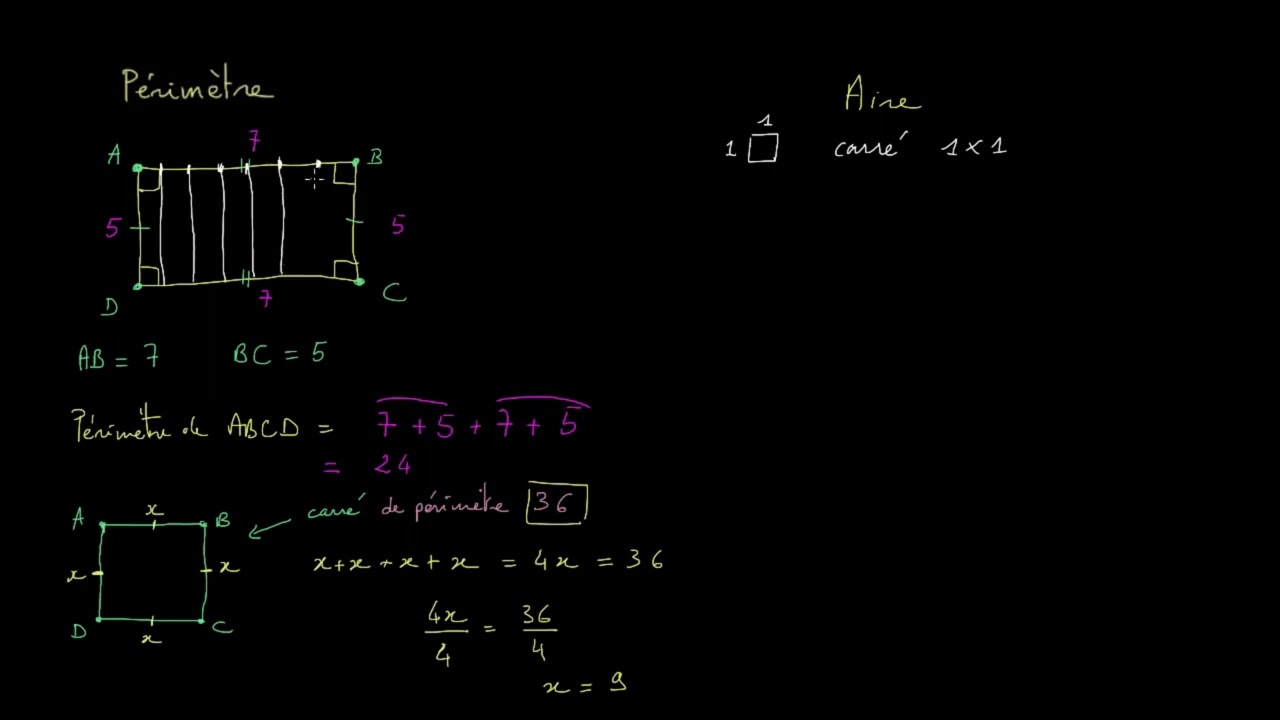 Périmètre
Aire
7
1
A B
1 carré 1 × 1
5 5
D 7 C
AB = 7 BC = 5
Périmètre de ABCD = 7 + 5 + 7 + 5
= 24
carré de périmètre 36
A x B
x x
x + x + x + x = 4x = 36
D x C
4x/4 = 36/4
x = 9